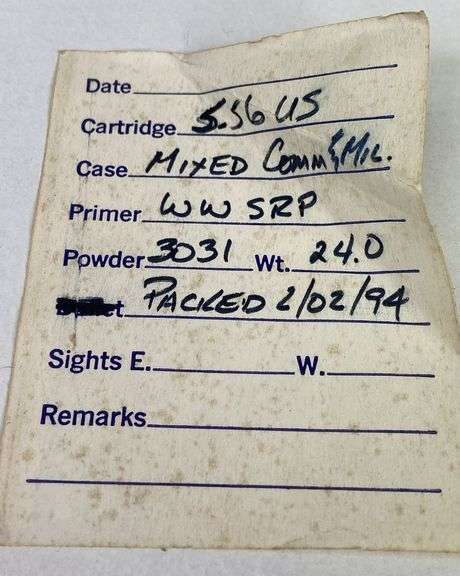 Date
Cartridge 5.56 US
Case MIXED COMM & MIL.
Primer WW SRP
Powder 3031 Wt. 24.0
t PACKED 2/02/94
Sights E. W.
Remarks